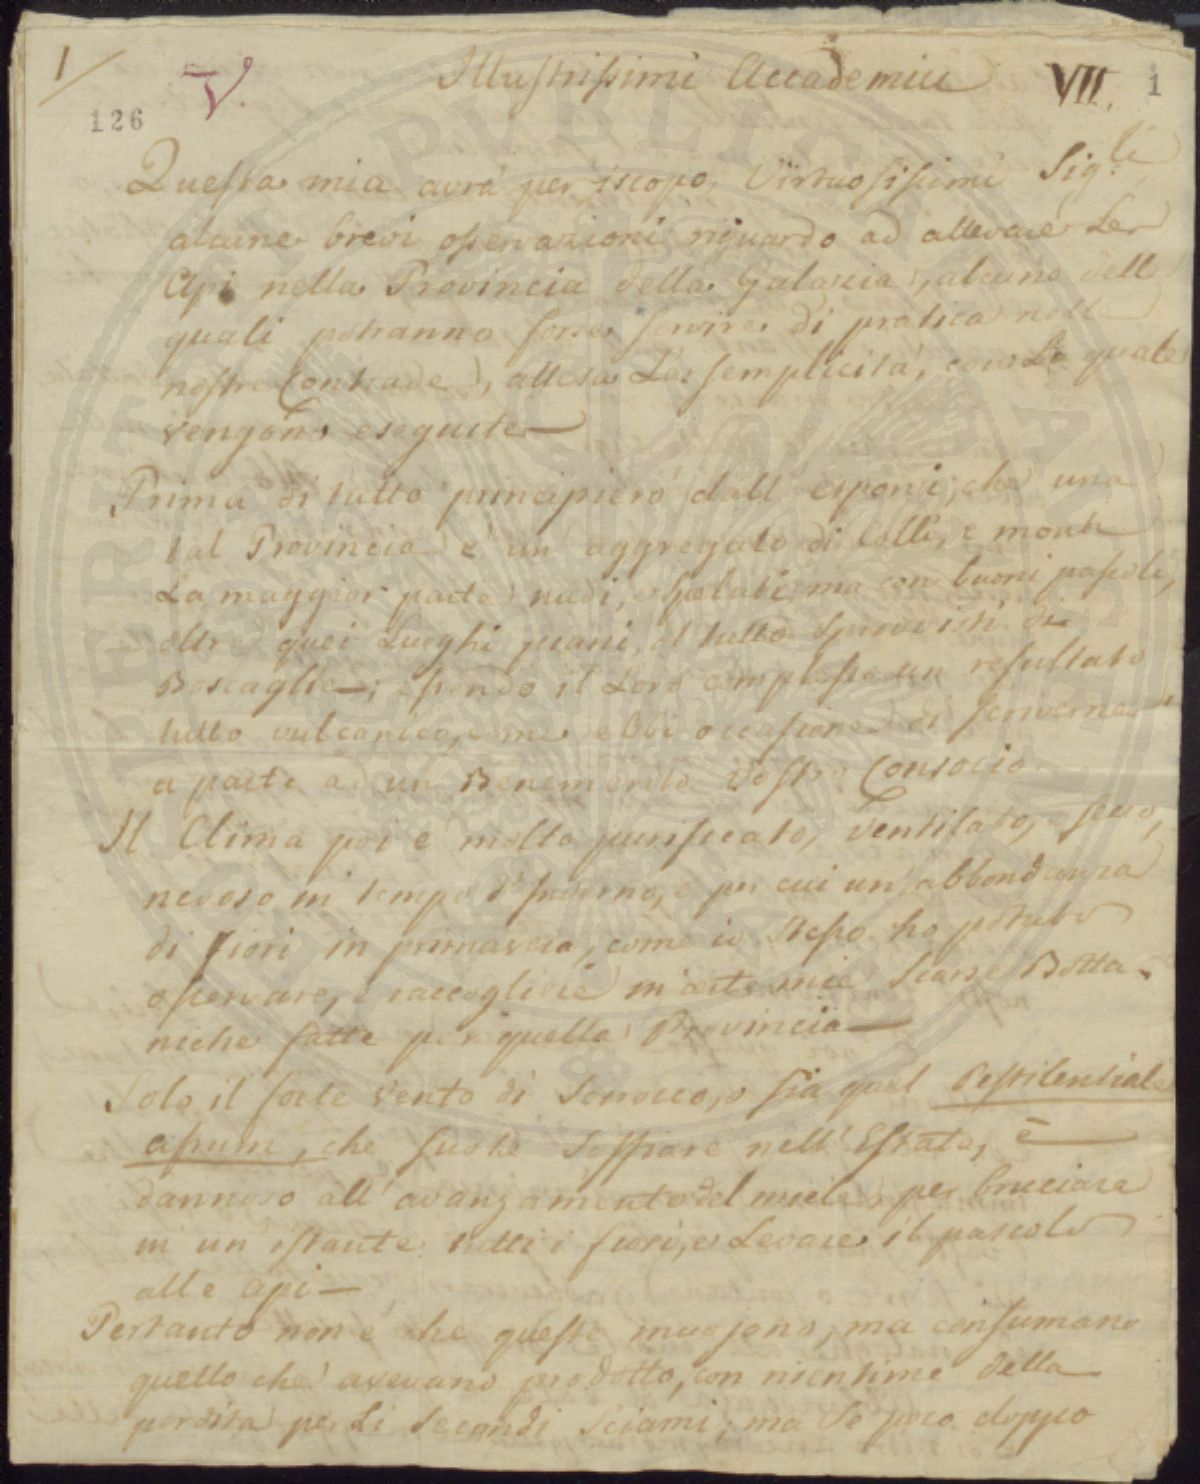 1/
V.
Illustrissimi Accademici
VII.
1
126
Questa mia avrà per iscopo, Virtuosissimi Sig:ri
alcune brevi osservazioni riguardo ad allevare Le
Api nella Provincia della Galazia, alcune delle
quali potranno forse servire di pratica nelle
nostre Contrade, attesa La semplicità, con La quale
vengono eseguite—
Prima di tutto principierò dall' esporvi, che una
tal Provincia è un' aggregato di Colli, e monti
La maggior parte nudi, e spelati, ma con buoni pascoli,
oltre quei Luoghi piani, al tutto sprovvisti di
Boscaglie—; essendo il Loro complesso un resultato
tutto vulcanico, come ebbi occasione di scriverne
a parte ad un Benemerito Vostro Consocio
Il Clima poi è molto purificato, ventilato, e secco,
nevoso in tempo d'Inverno, e per cui un' abbondanza
di Fiori in primavera, come io stesso ho potuto
osservare, e raccogliere in certe mie Scorse Botta-
niche fatte per quella Provincia—
Solo il forte Vento di Scirocco, o sia quel Pestilentiale
, che suole Soffiare nell' Estate, è—
dannoso all' avanzamento del miele, per bruciare
in un' istante tutti i fiori, e Levare il pascolo
alle api—
Pertanto non è che queste muojono, ma consumano
quello che avevano prodotto, con nientime della
perdita per Li Secondi Sciami; ma Se poco doppo
PERITI PVBLIAE